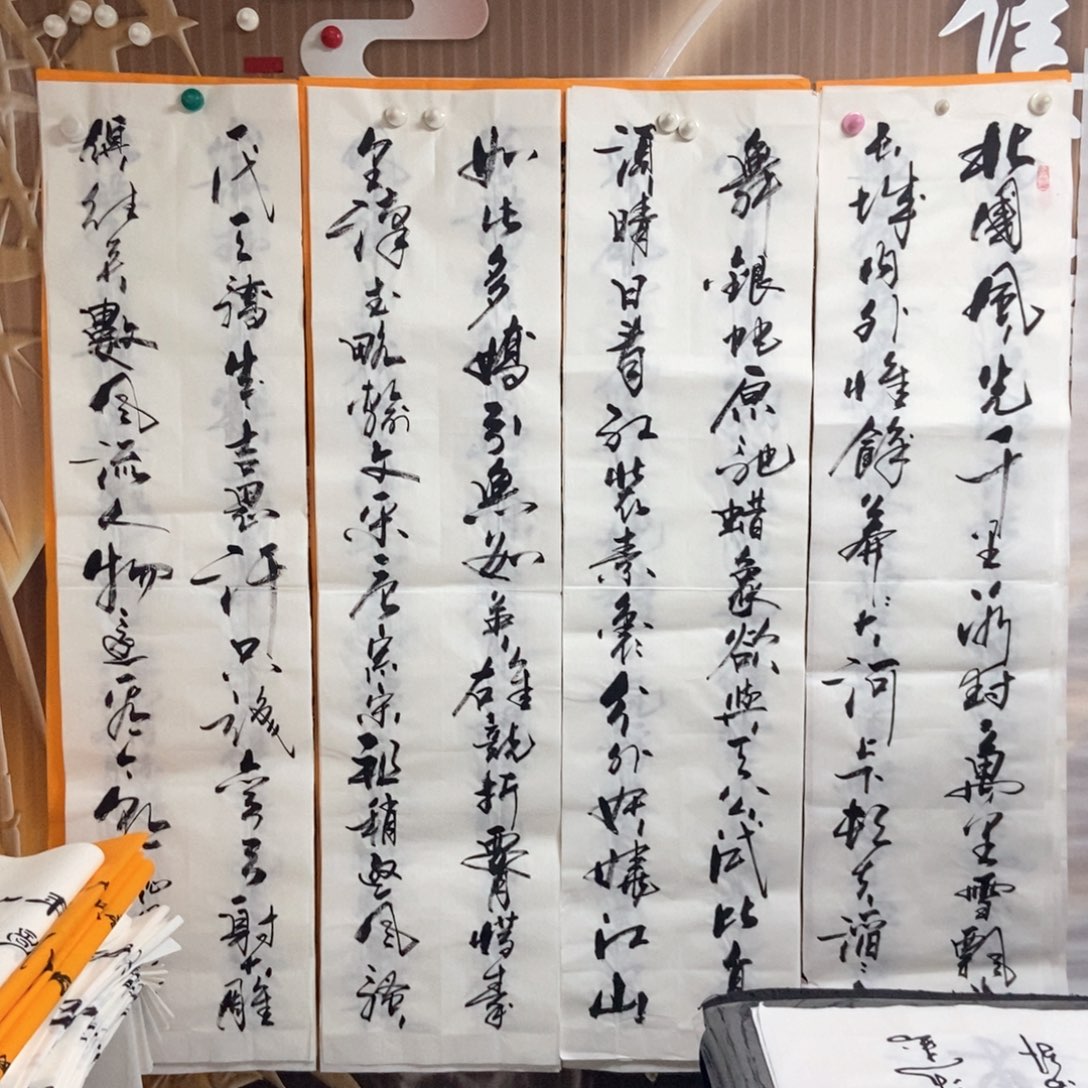 佳
北國風光千里冰封萬里雪飄
长城内外惟餘莽々大河上下顿失滔々
舞銀蛇原驰蜡象欲與天公試比高
須晴日看红装素裹分外妖嬈江山
如此多嬌引無数英雄競折腰惜秦
皇漢武略輸文采唐宗宋祖稍遜風騷
一代天驕成吉思汗只識彎弓射大雕
俱往矣數風流人物還看今朝